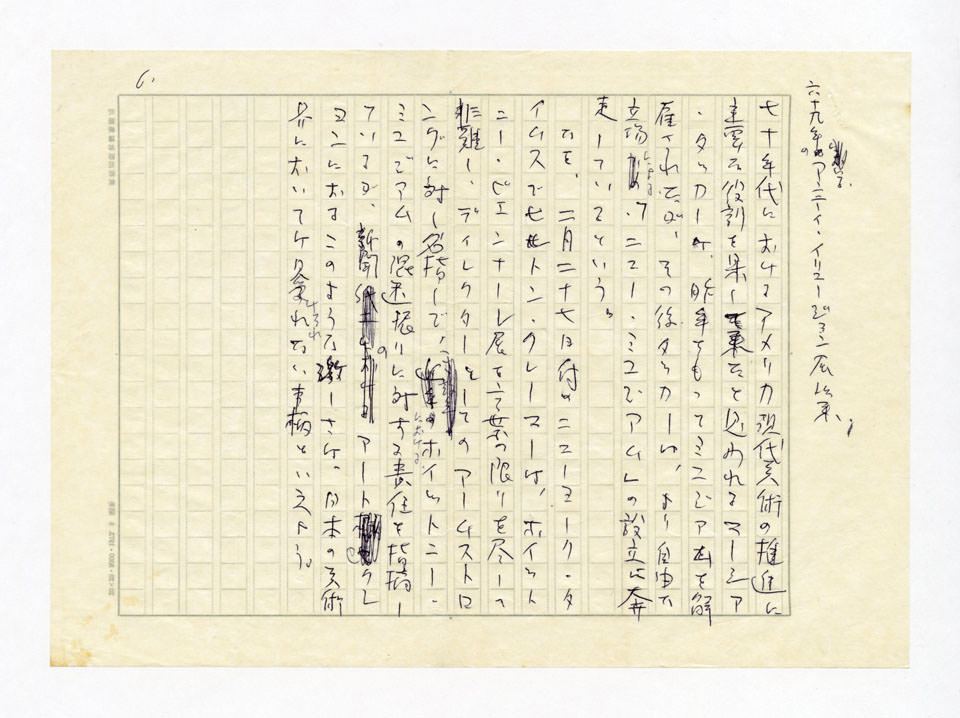 六十九年のアンティ・イリュージョン展以来、
七十年代におけるアメリカ現代美術の推進に
重要な役割を果して来たと思われるマーシア
・タッカーは、昨年をもってミュジアムを解
雇されたが、その後タッカーは、より自由な
立場による、ニュー・ミュジアムの設立に奔
走しているという。
なお、二月二十七日付のニューヨーク・タ
イムスでヒルトン・クレーマーは、ホイット
ニー・ビエンナーレ展を言葉の限りを尽して
非難し、ディレクターとしてのアームストロ
ングに対し名指しで、ホイットニー・
ミュジアムの限定振りに対する責任を指摘し
ているが、新聞のアート
ョンにおけるこのような激しさは、日本の美術
界においては考えられない事柄といえよう。
6